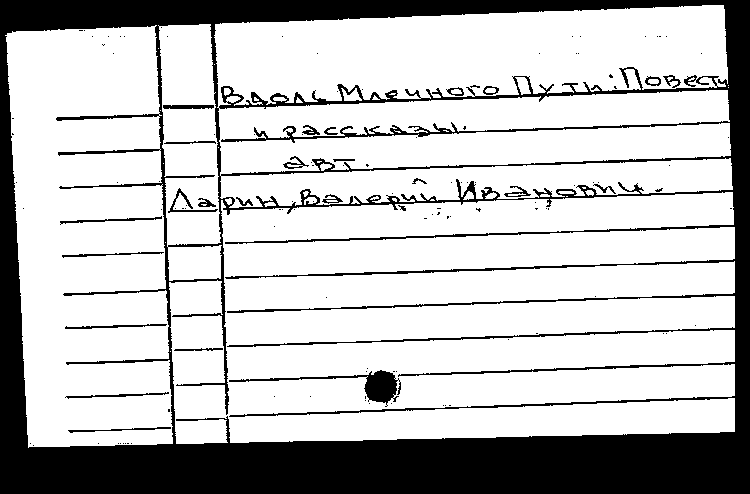 Вдоль Млечного Пути: Повести
и рассказы.
авт.
Ларин, Валерий Иванович.